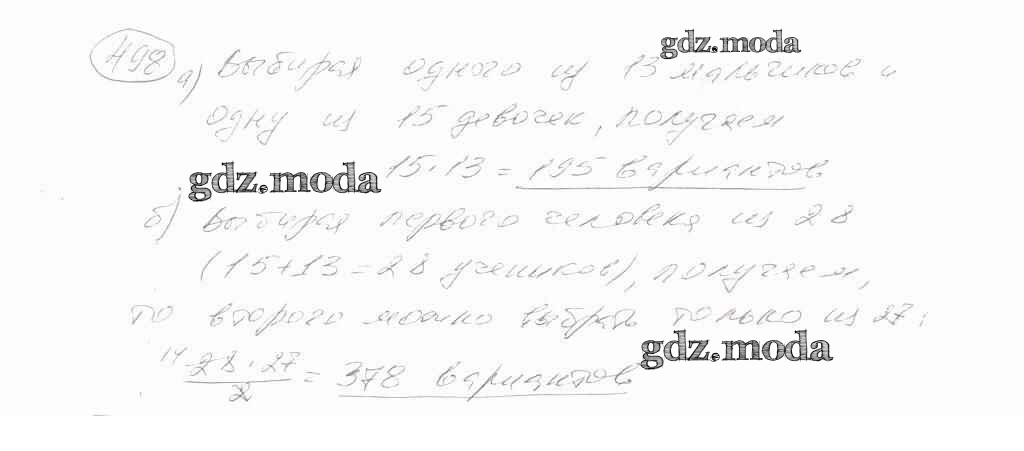 498
gdz.moda
а) Выбирая одного из 13 мальчиков и
одну из 15 девочек, получаем
gdz.moda
15 · 13 = 195 вариантов
б) Выбирая первого человека из 28
(15 + 13 = 28 учеников), получаем,
то второго можно выбрать только из 27:
gdz.moda
14 28 · 27 / 2 = 378 вариантов